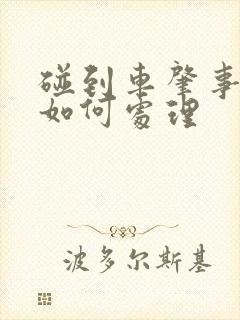 碰到車肇事
如何處理
波多尔斯基